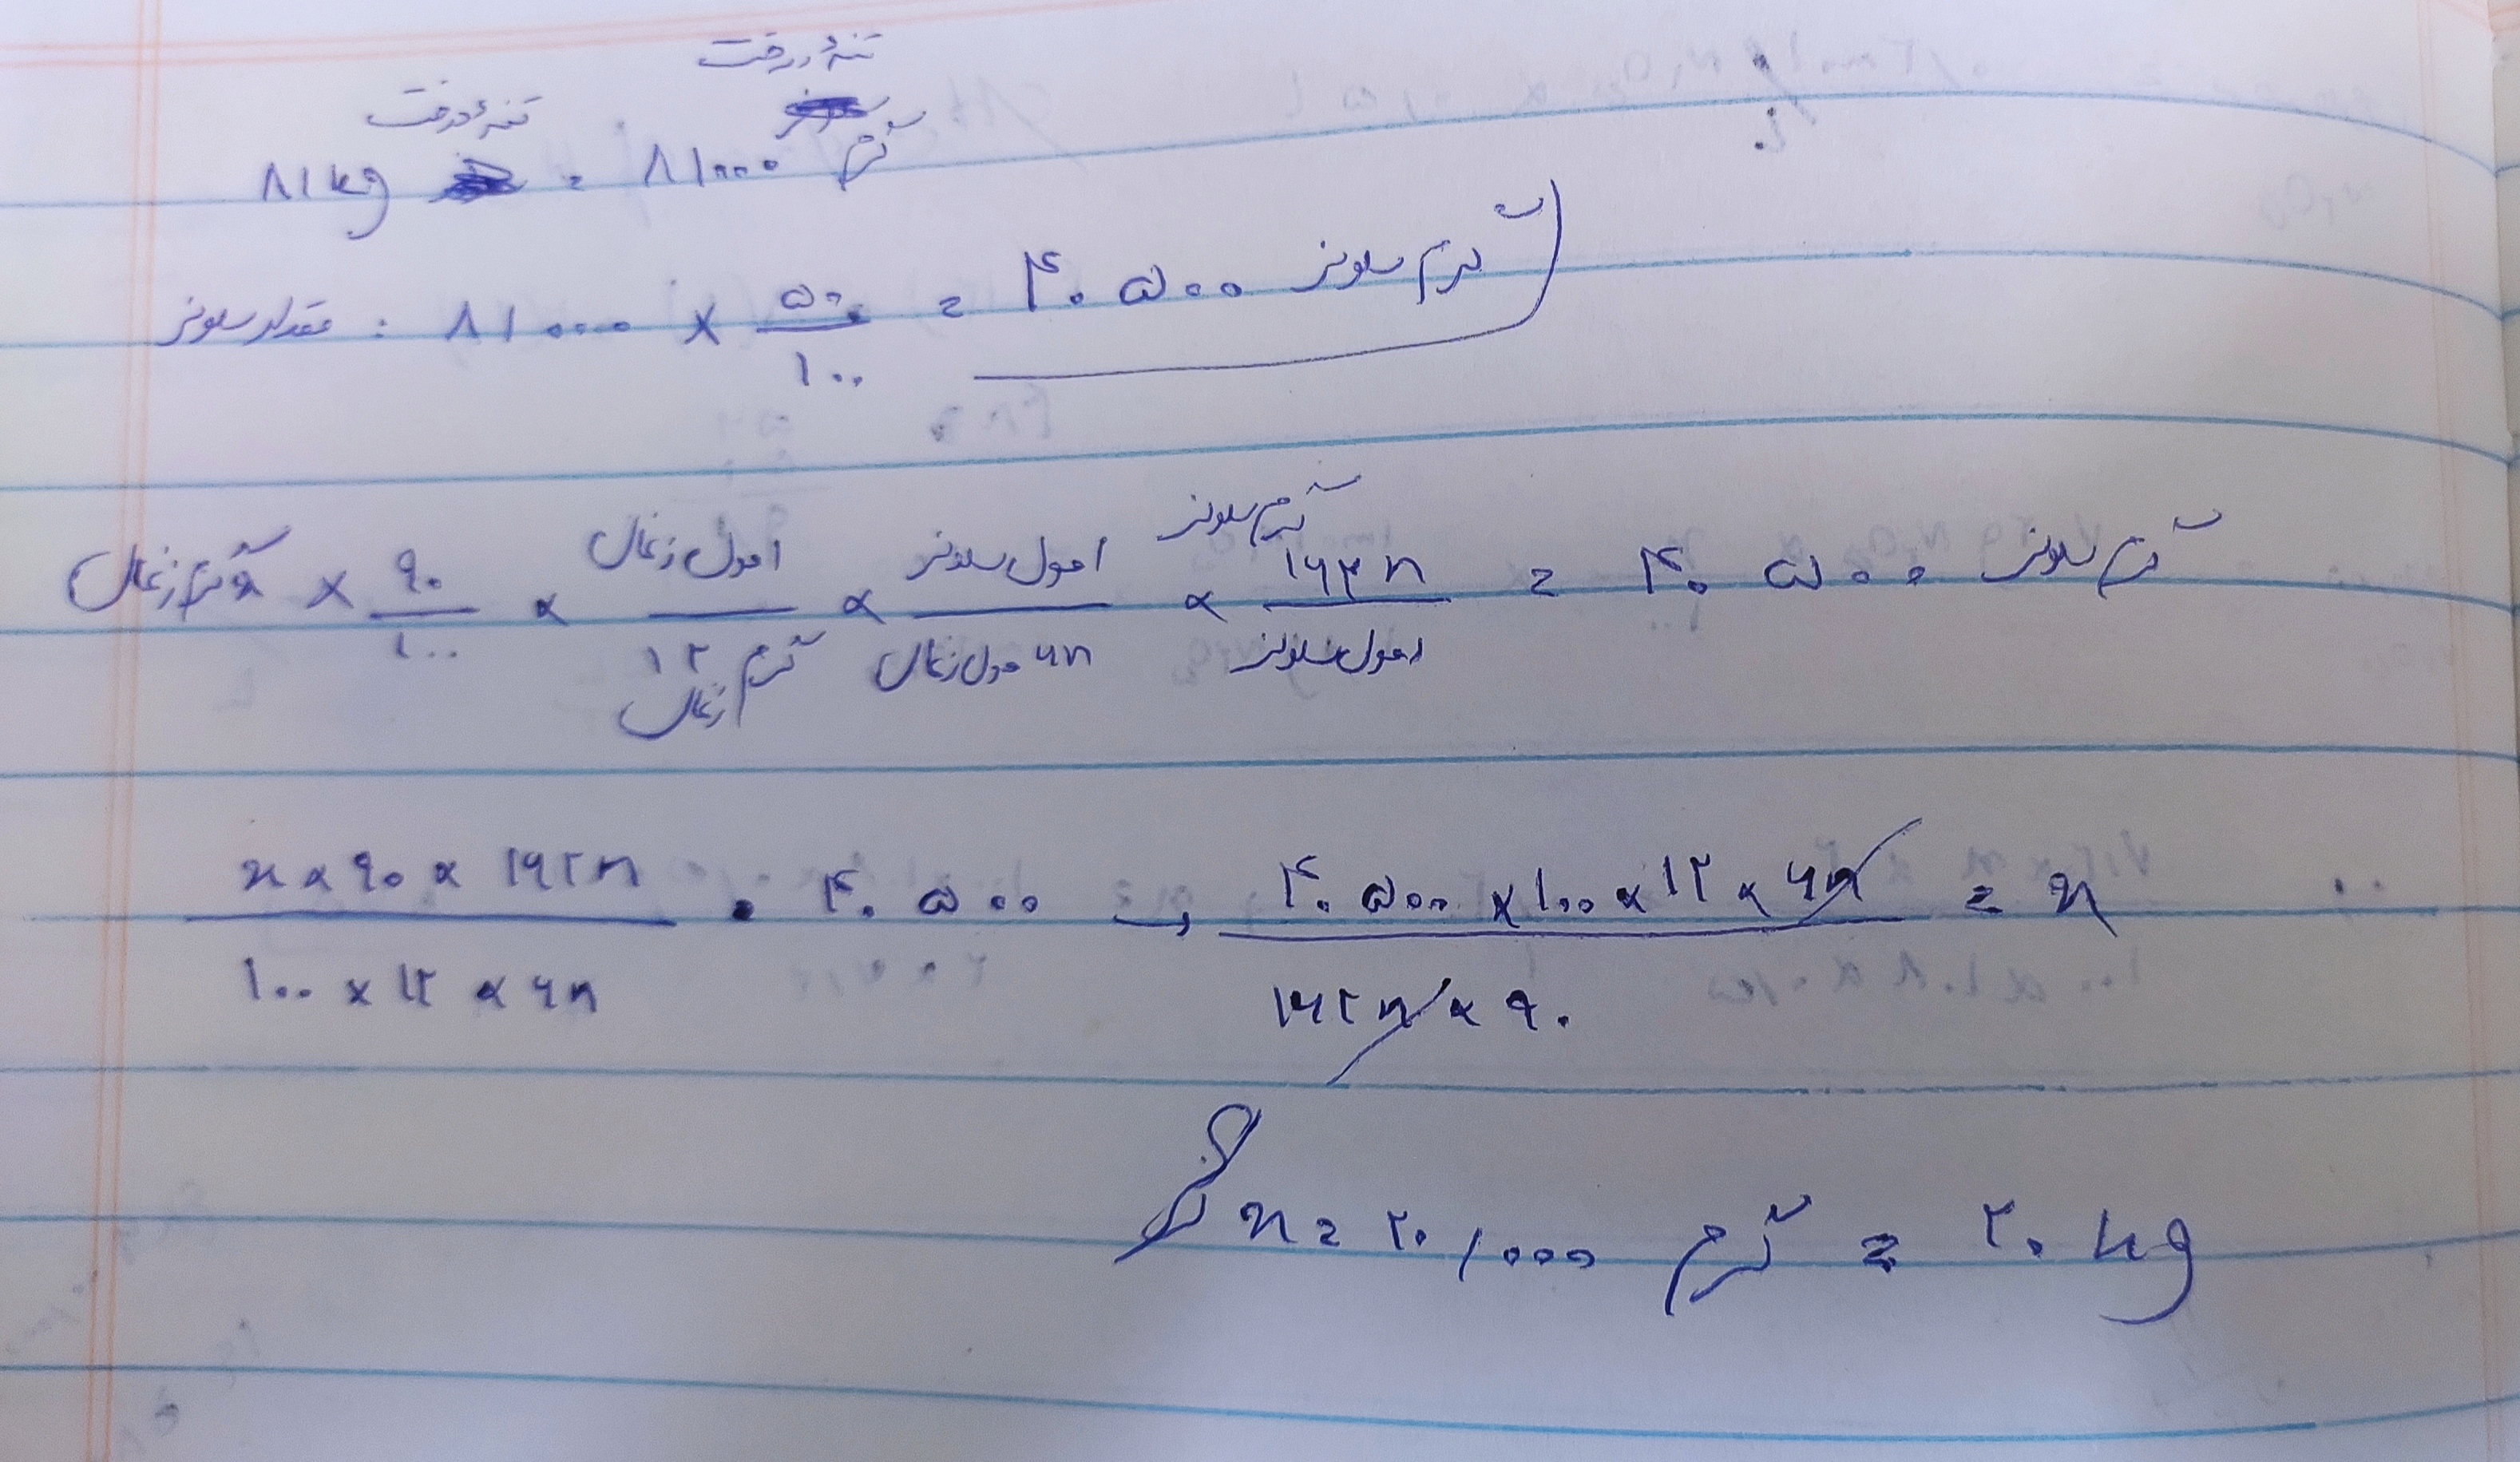 تنهٔ درخت تنهٔ درخت
۸۱kg = ۸۱۰۰۰ گرم
مقدار سلولز : ۸۱۰۰۰ × ۵۰/۱۰۰ = ۴۰۵۰۰ گرم سلولز
x گرم زغال × ۹۰/۱۰۰ × ۱مول زغال/۱۲ گرم زغال × ۱مول سلولز/۶n مول زغال × ۱۶۲n گرم سلولز/۱مول سلولز = ۴۰۵۰۰ گرم سلولز
x × ۹۰ × ۱۶۲n / ۱۰۰ × ۱۲ × ۶n = ۴۰۵۰۰ → ۴۰۵۰۰ × ۱۰۰ × ۱۲ × ۶n / ۱۶۲n × ۹۰ = x
x = ۲۰/۰۰۰ گرم = ۲۰ kg